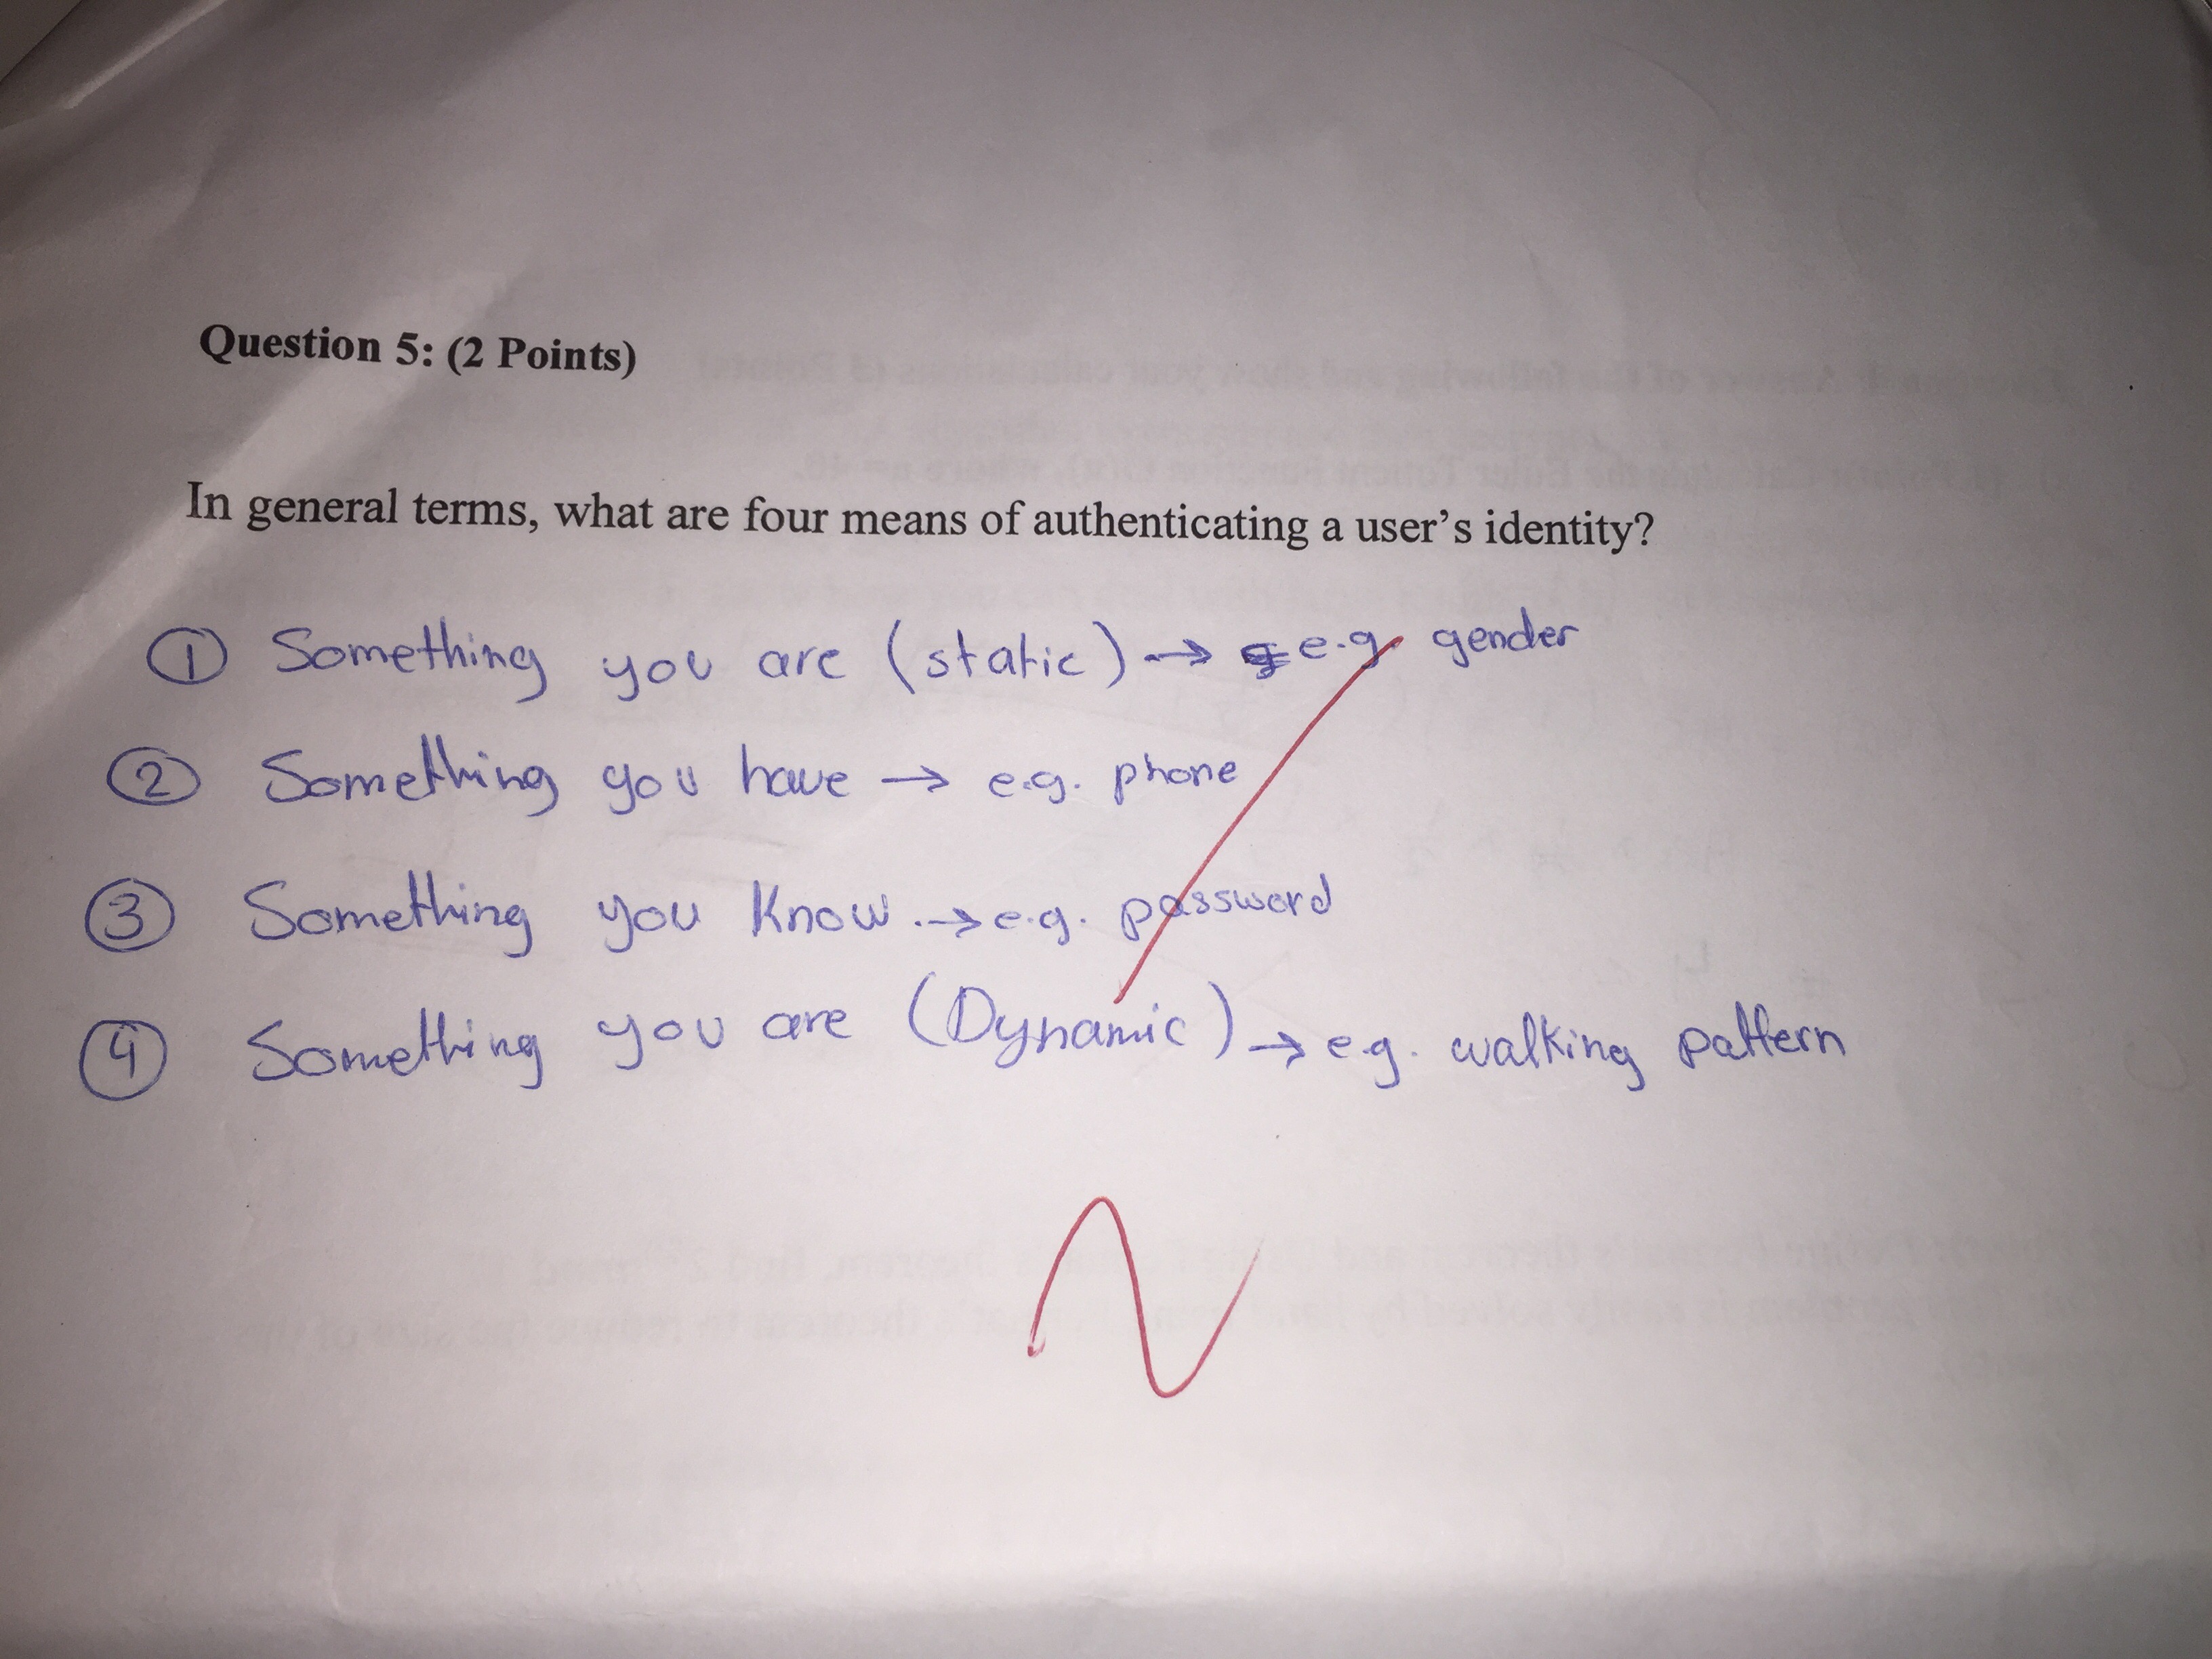 Question 5: (2 Points)
In general terms, what are four means of authenticating a user's identity?
① Something you are (static) → e.g. gender
② Something you have → e.g. phone
③ Something you know. → e.g. password
④ Something you are (Dynamic) → e.g. walking pattern